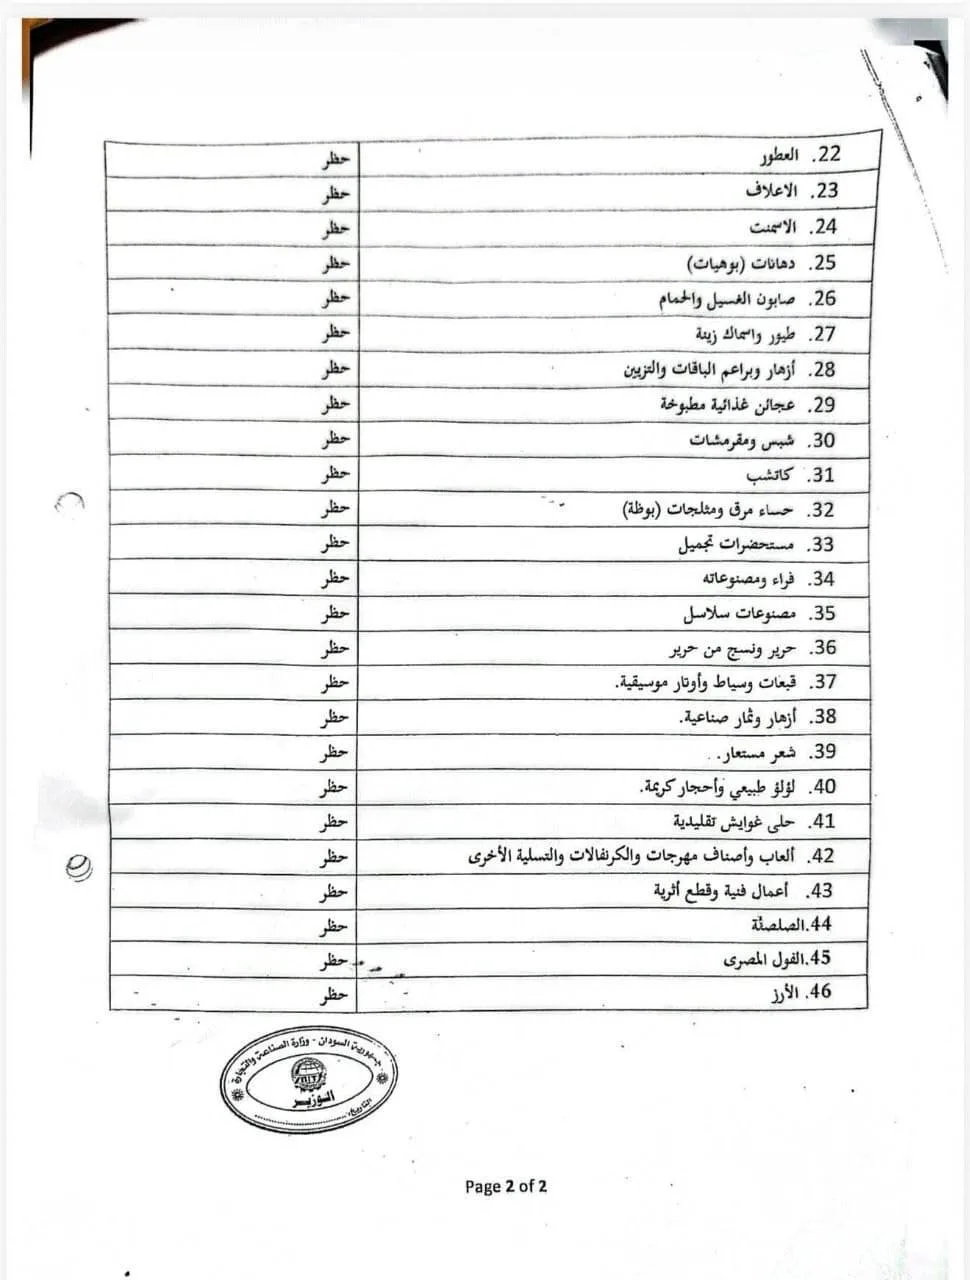 22. العطور حظر
23. الاعلاف حظر
24. الاسمنت حظر
25. دهانات (بوهيات) حظر
26. صابون الغسيل والحمام حظر
27. طيور واسماك زينة حظر
28. أزهار وبراعم الباقات والتزيين حظر
29. عجائن غذائية مطبوخة حظر
30. شبس ومقرمشات حظر
31. كاتشب حظر
32. حساء مرق ومثلجات (بوظة) حظر
33. مستحضرات تجميل حظر
34. فراء ومصنوعاته حظر
35. مصنوعات سلاسل حظر
36. حرير ونسج من حرير حظر
37. قبعات وسياط وأوتار موسيقية. حظر
38. أزهار وثمار صناعية. حظر
39. شعر مستعار. حظر
40. لؤلؤ طبيعي وأحجار كريمة. حظر
41. حلى غوايش تقليدية حظر
42. ألعاب وأصناف مهرجات والكرنفالات والتسلية الأخرى حظر
43. أعمال فنية وقطع أثرية حظر
44.الصلصلة حظر
45.الفول المصرى حظر
46. الأرز حظر
جمهورية السودان - وزارة الصناعة والتجارة
الوزير
التاريخ:
Page 2 of 2